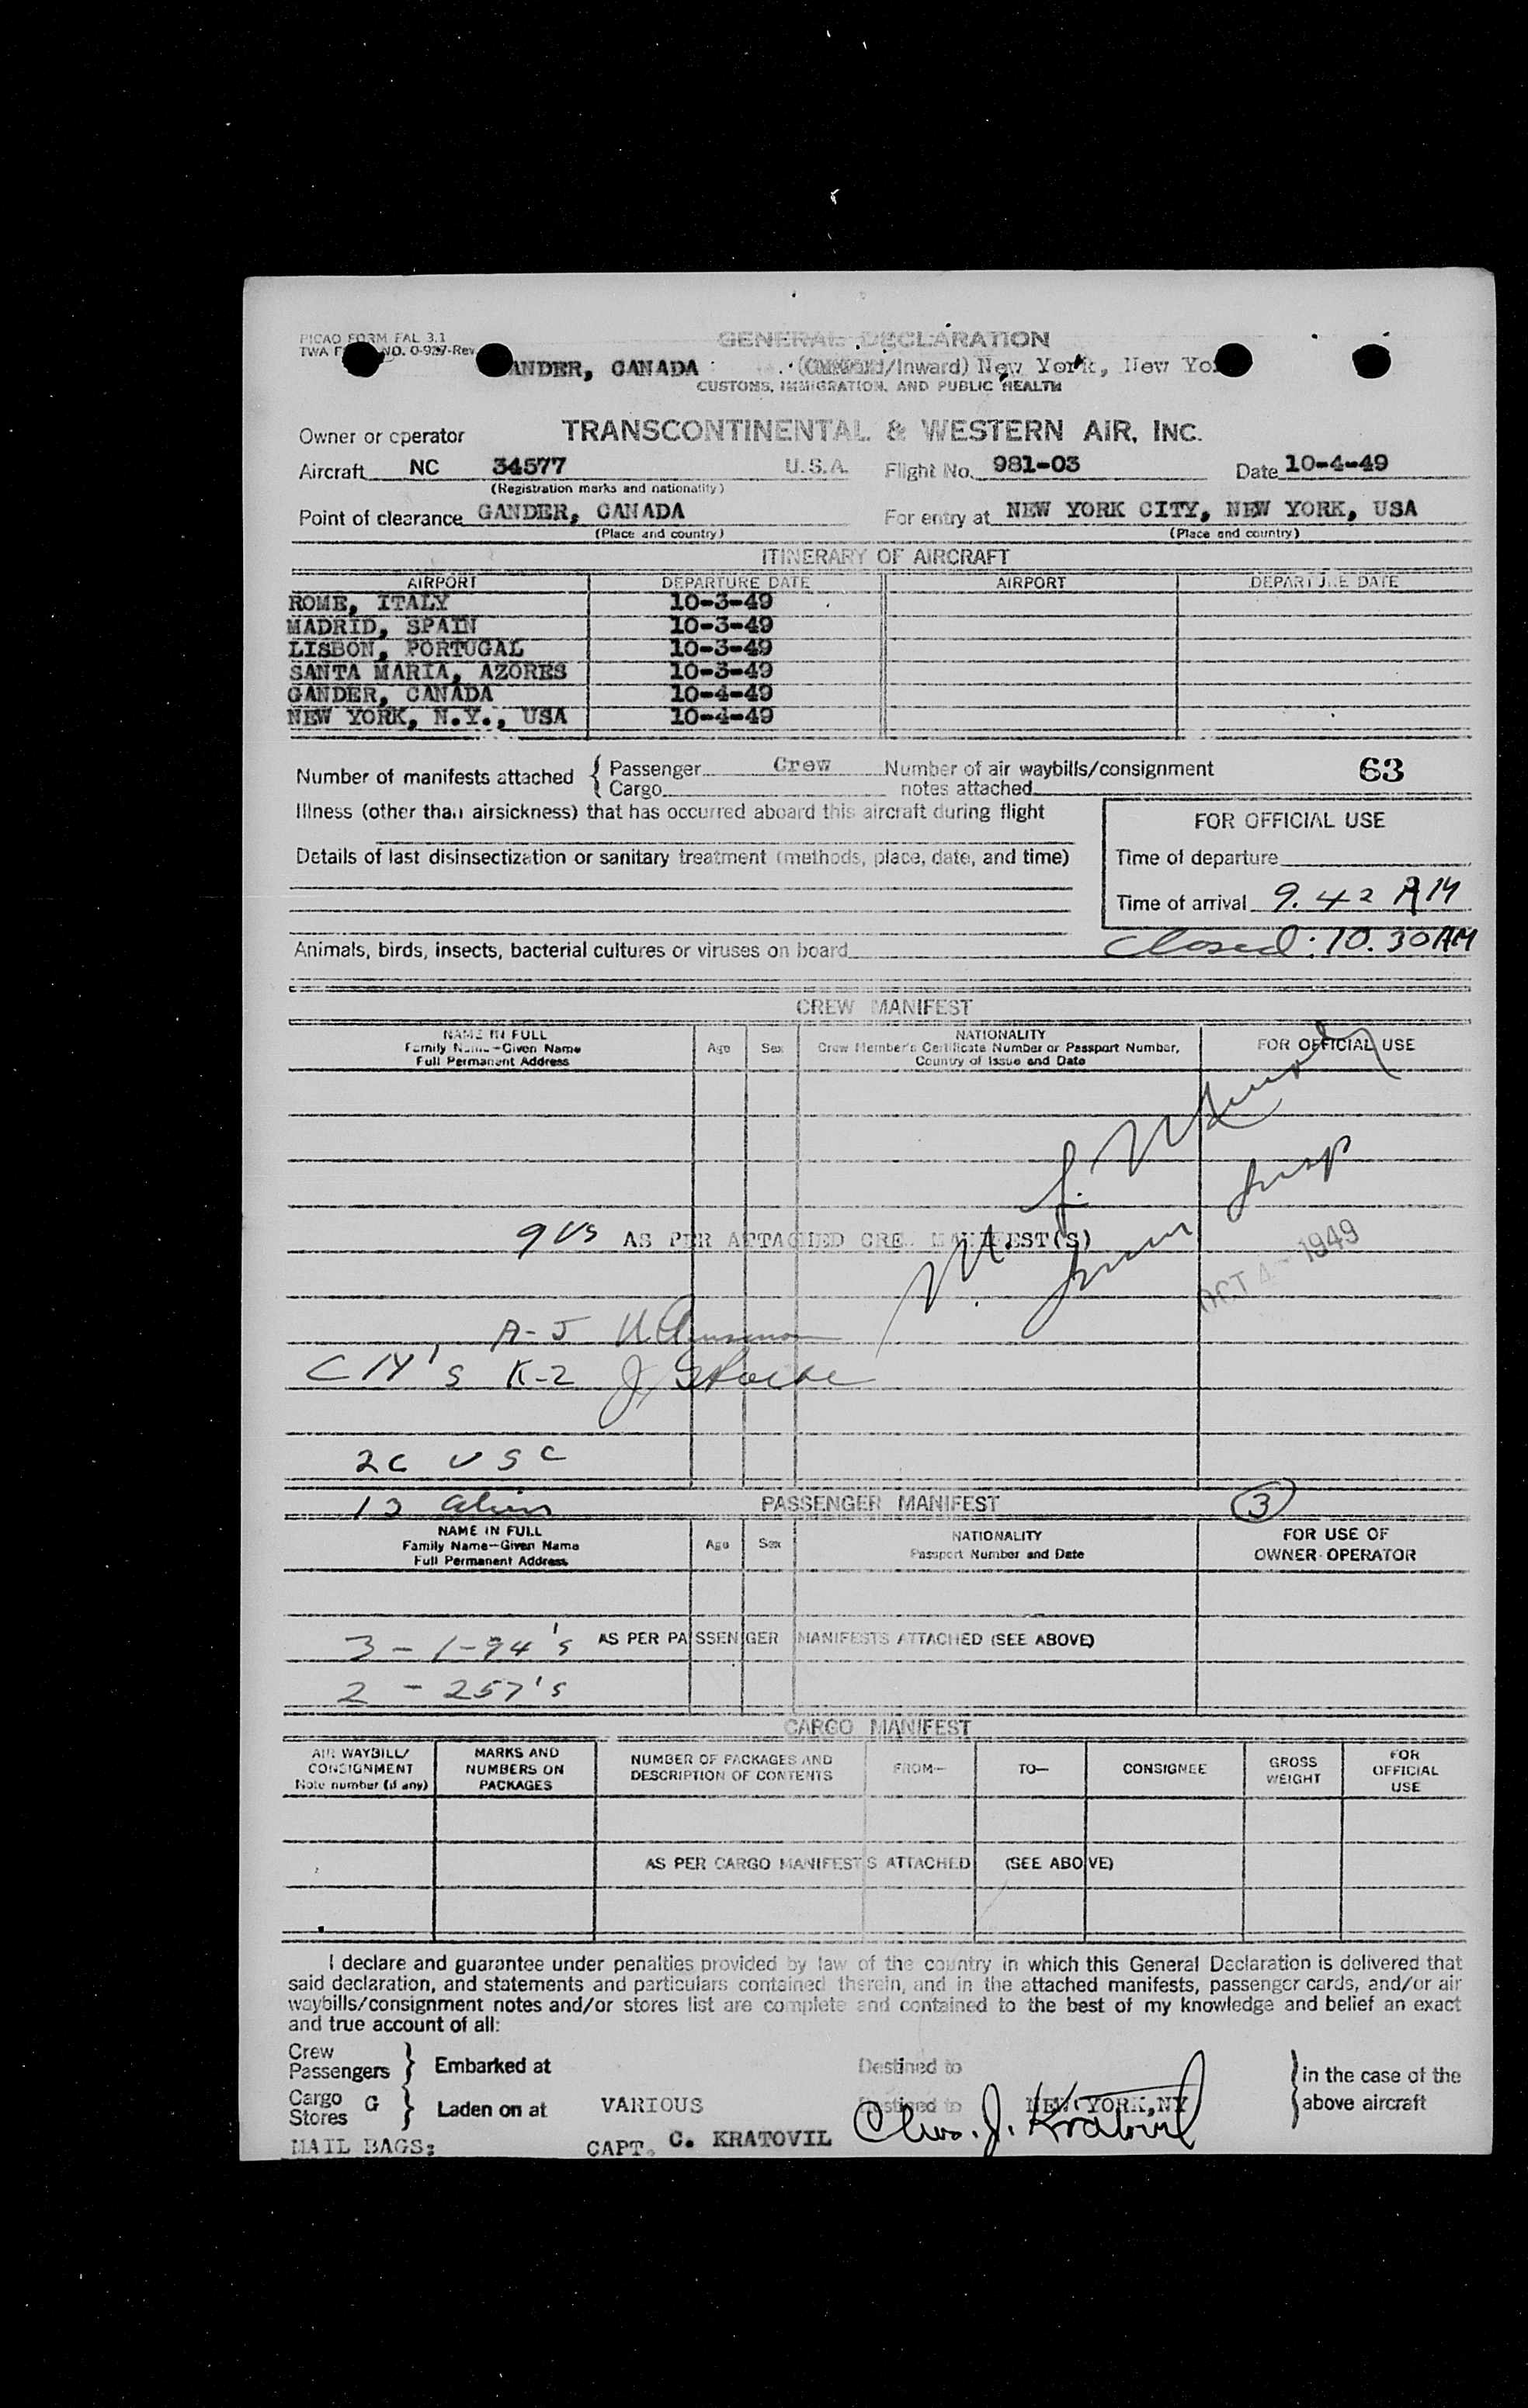 PICAO FORM FAL 3.1
TWA NO. 0-927-Rev
GENERAL DECLARATION
ANDER, CANADA (/Inward) New York, New Yo
CUSTOMS, IMMIGRATION, AND PUBLIC HEALTH
Owner or operator TRANSCONTINENTAL & WESTERN AIR, INC.
Aircraft NC 34577 U.S.A. Flight No. 981-03 Date 10-4-49
(Registration marks and nationality)
Point of clearance GANDER, CANADA For entry at NEW YORK CITY, NEW YORK, USA
(Place and country) (Place and country)
ITINERARY OF AIRCRAFT
AIRPORT DEPARTURE DATE AIRPORT DEPARTURE DATE
ROME, ITALY 10-3-49
MADRID, SPAIN 10-3-49
LISBON, PORTUGAL 10-3-49
SANTA MARIA, AZORES 10-3-49
GANDER, CANADA 10-4-49
NEW YORK, N.Y., USA 10-4-49
Number of manifests attached { Passenger Crew Number of air waybills/consignment 63
Cargo notes attached
Illness (other than airsickness) that has occurred aboard this aircraft during flight
FOR OFFICIAL USE
Details of last disinsectization or sanitary treatment (methods, place, date, and time)
Time of departure
Time of arrival 9.42 AM
Closed: 10.30 AM
Animals, birds, insects, bacterial cultures or viruses on board
CREW MANIFEST
NAME IN FULL
Family Name—Given Name
Full Permanent Address
Age Sex
NATIONALITY
Crew Member's Certificate Number or Passport Number,
Country of Issue and Date
FOR OFFICIAL USE
9 US AS PER ATTACHED CREW MANIFEST(S)
Insp
OCT 4 - 1949
A-J
CM's K-2 J.
2C USC
13 alien
PASSENGER MANIFEST 3
NAME IN FULL
Family Name—Given Name
Full Permanent Address
Age Sex
NATIONALITY
Passport Number and Date
FOR USE OF
OWNER-OPERATOR
3 - 1-94's AS PER PASSENGER MANIFESTS ATTACHED (SEE ABOVE)
2 - 257's
CARGO MANIFEST
AIR WAYBILL/
CONSIGNMENT
Note number (if any)
MARKS AND
NUMBERS ON
PACKAGES
NUMBER OF PACKAGES AND
DESCRIPTION OF CONTENTS
FROM—
TO—
CONSIGNEE
GROSS
WEIGHT
FOR
OFFICIAL
USE
AS PER CARGO MANIFESTS ATTACHED (SEE ABOVE)
I declare and guarantee under penalties provided by law of the country in which this General Declaration is delivered that
said declaration, and statements and particulars contained therein, and in the attached manifests, passenger cards, and/or air
waybills/consignment notes and/or stores list are complete and contained to the best of my knowledge and belief an exact
and true account of all:
Crew
Passengers } Embarked at Destined to } in the case of the
Cargo G
Stores } Laden on at VARIOUS Destined to NEW YORK,NY above aircraft
MAIL BAGS: CAPT. C. KRATOVIL Chas. J. Kratovil